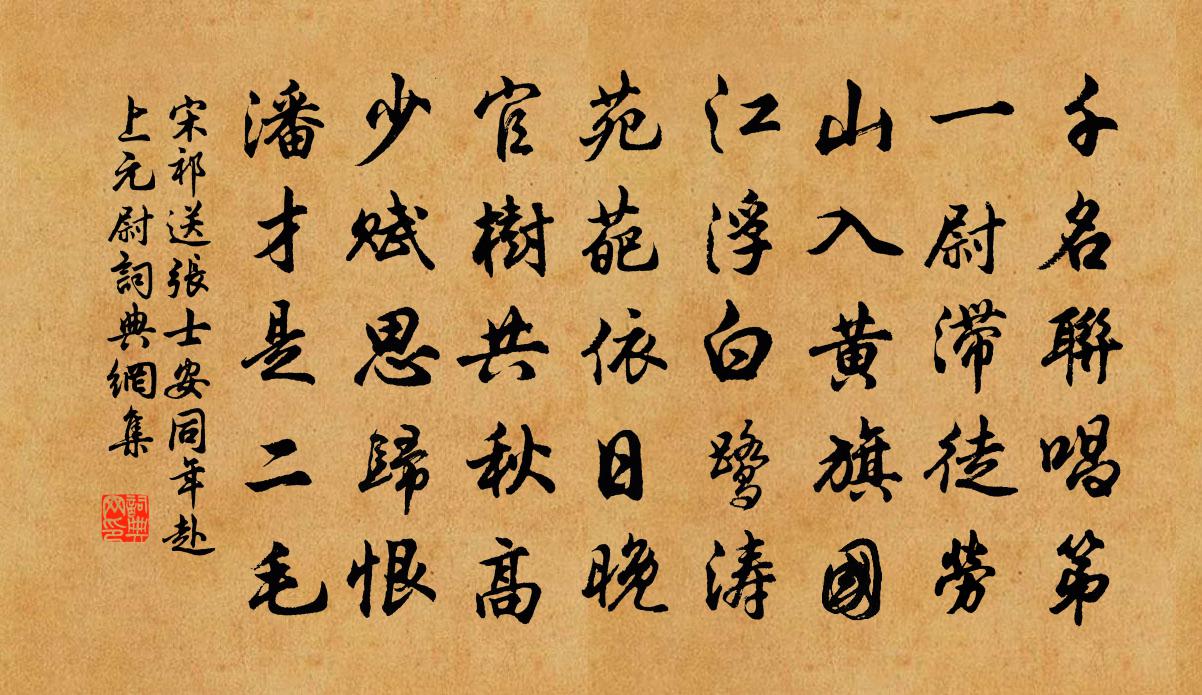 千名聯唱第
一尉滯徒勞
山入黃旗國
江浮白鷺濤
苑葩依日晚
官樹共秋高
少賦思歸恨
潘才是二毛
宋祁送張士安同年赴
上元尉詞典網集
詞典
网印